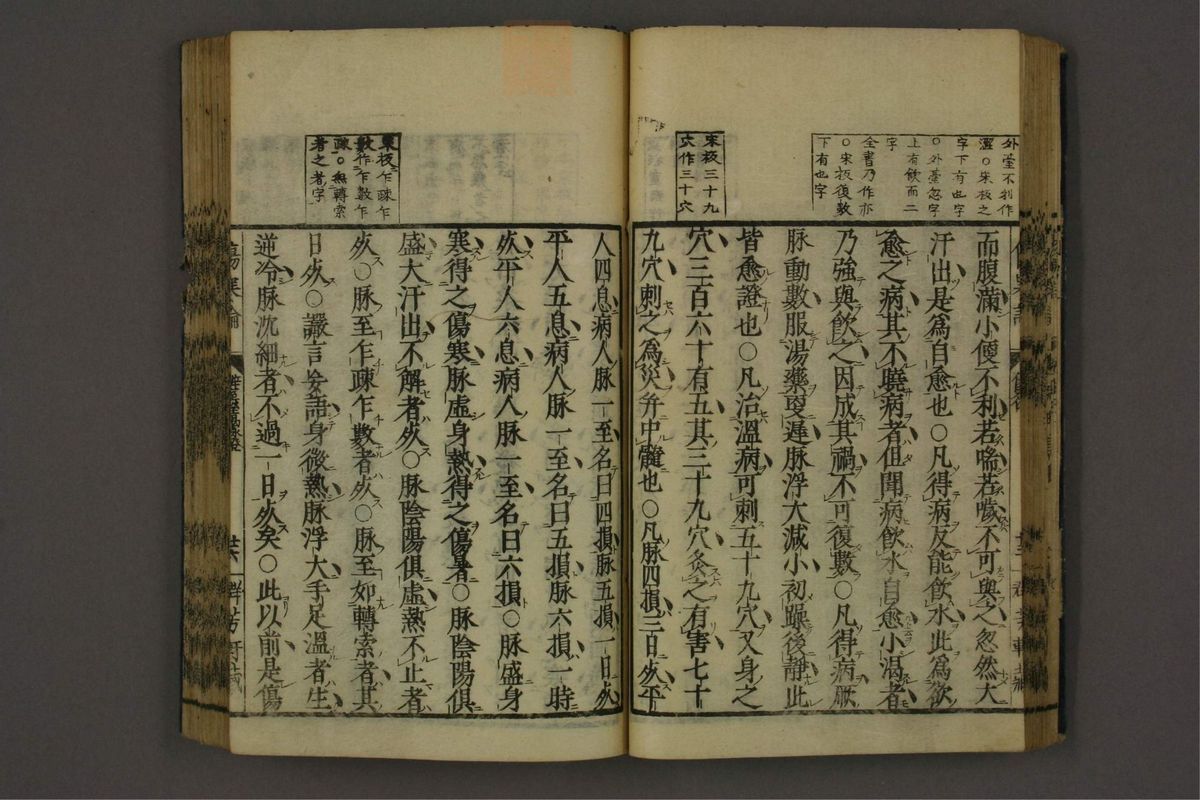 外臺不利作
澀○宋板之
字下有也字
○外臺忽字
上有飲而二
字
全書乃作亦
○宋板復數
下有也字
宋板三十九
穴作三十穴
而腹滿小便不利若喘若噦不可與之忽然大
汗出是爲自愈也○凡得病反能飲水此爲欲
愈之病其不曉病者但聞病飲水自愈小渴者
乃強與飲之因成其禍不可復數○凡得病厥
脉動數服湯藥更遲脉浮大減小初躁後靜此
皆愈證也○凡治溫病可刺五十九穴又身之
穴三百六十有五其三十九穴灸之有害七十
九穴刺之爲災并中髓也○凡脉四損三日死平
人四息病人脉一至名曰四損脉五損一日死
平人五息病人脉一至名曰五損脉六損一時
死平人六息病人脉一至名曰六損○脉盛身
寒得之傷寒脉虛身熱得之傷暑○脉陰陽俱
盛大汗出不解者死○脉陰陽俱虛熱不止者
死○脉至乍疎乍數者死○脉至如轉索者其
日死○讝言妄語身微熱脉浮大手足溫者生
逆冷脉沈細者不過一日死矣○此以前是傷
宋板乍疎乍
數作乍數乍
疎○無轉索
者之者字
傷寒論
廿六